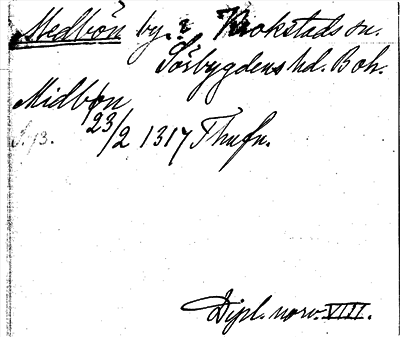 Medbön by i Krokstads sn.
Sörbygdens hd. Boh.
Midbøn
S. 73. 23/2 1317 Thufn.
Dipl. norv. VIII.